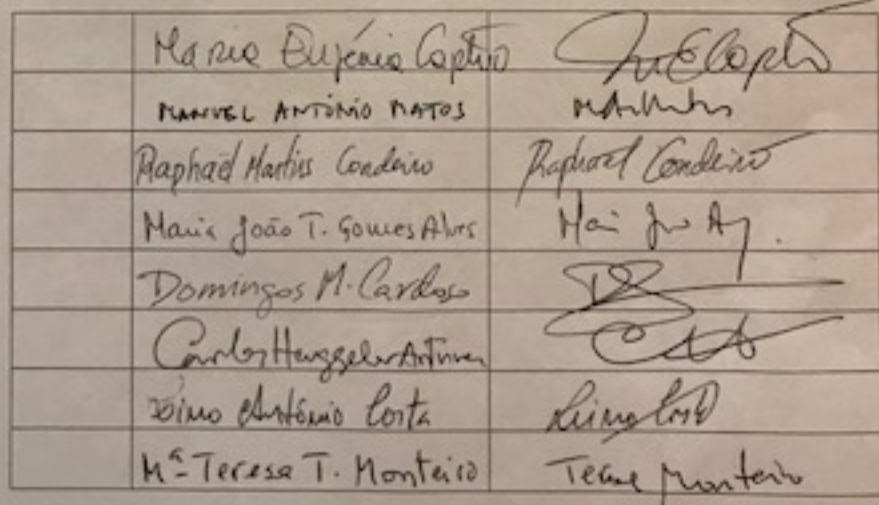 Maria Eugénia Captivo MECaptivo
MANUEL ANTÓNIO MATOS MAMatos
Raphaël Martins Cordeiro Raphael Cordeiro
Maria João T. Gomes Alves
Domingos M. Cardoso
Carlos Henggeler Antunes
António Costa
Mª Teresa T. Monteiro Monteiro